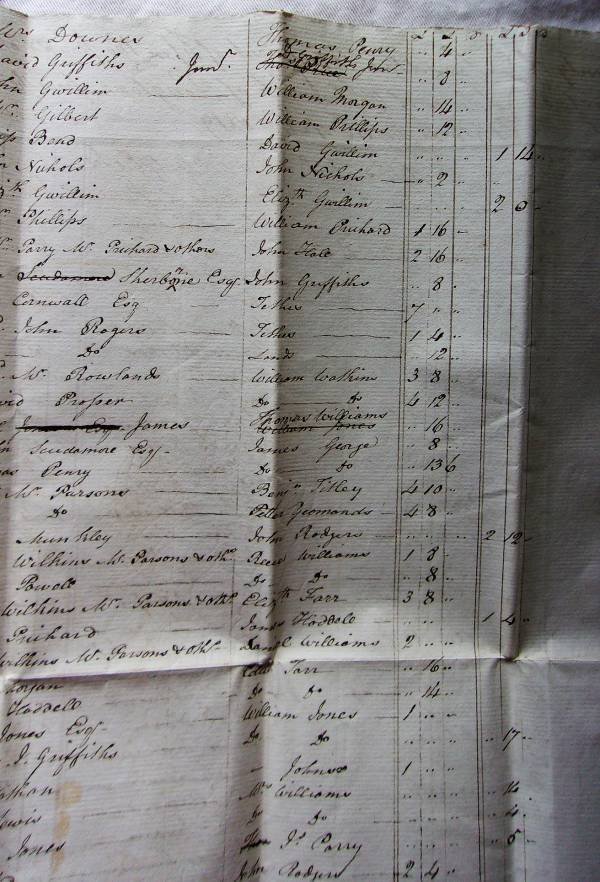 £ s d £ s d
Downes Thomas Penry " 4 "
Griffiths Junr. Junr. " 8 "
Gwillim William Morgan " 14 "
Gilbert William Phillips " 12 "
Bend David Gwillim " " " 1 14 "
Nichols John Nichols " 2 "
Gwillim Elizth Gwillim " " " 2 0 "
Phillips William Prichard 1 16 "
Parry Mr. Prichard & others John Hole 2 16 "
Scudamore Sherborne Esqr. John Griffiths " 8 "
Cornwall Esq Tithes 7 " "
John Rogers Tithes 1 4 "
Do Lands " 12 "
Mr. Rowlands William Watkins 3 8 "
Prosser Do Do 4 12 "
James Thomas Williams
William Jones " 16 "
Scudamore Esqr. James George " 8 "
Penry Do Do " 13 6
Mr. Parsons Benjn Titley 4 10 "
Do Peter Yeomands 4 8 "
Munkley John Rodgers " " " 2 12 "
Wilkins Mr. Parsons & oths. Rees Williams 1 8 "
Powell Do Do " 8 "
Wilkins Mr. Parsons & oths. Elizth Farr 3 8 "
Prichard James Hoddell " " " 1 4 "
Wilkins Mr. Parsons & oths. Danl Williams 2 " "
Morgan Farr " 16 "
Hoddell Do Do " 14 "
Jones Esqr. William Jones 1 " "
J. Griffiths Do Do " " " " 17 "
Johnson 1 " "
Mrs Williams " 14 "
Lewis Do Do " 4 "
Jones Js. Parry " 5 "
John Rodgers 2 4 "